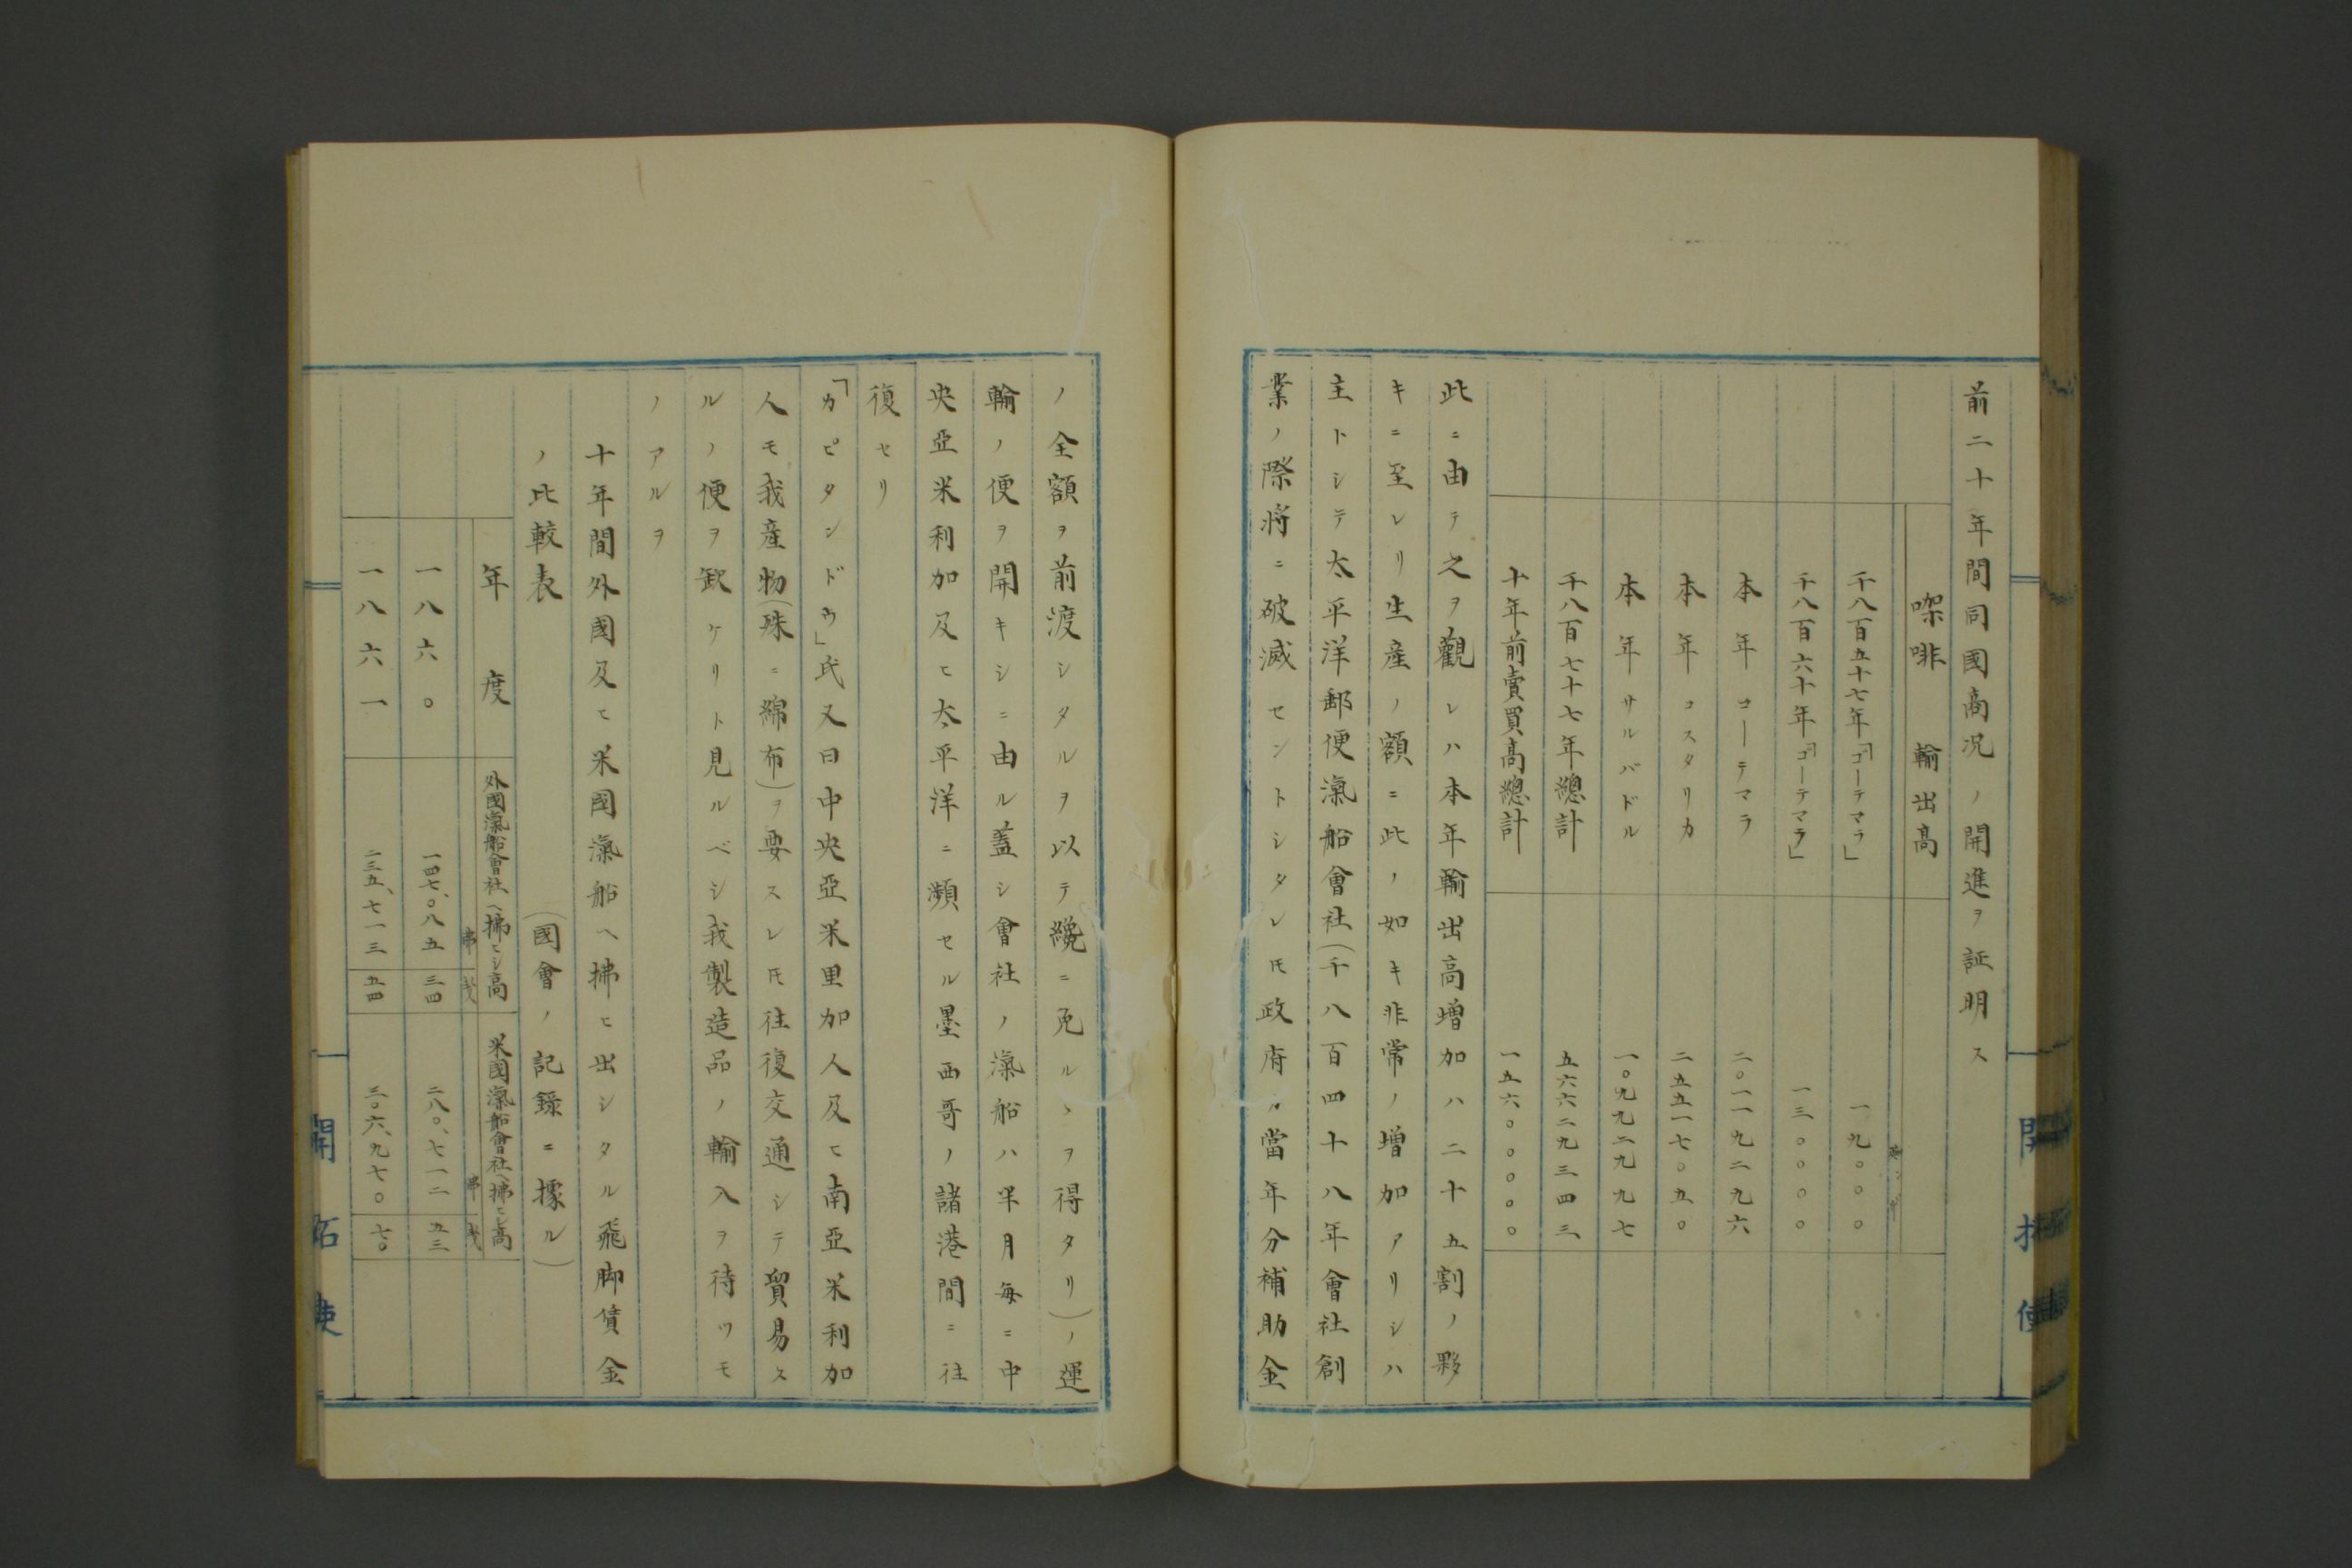 前二十年間同國商况ノ開進ヲ証明ス
㗎啡 輸出高
千八百五十七年「ゴーテマラ」 一九〇〇〇
千八百六十年「ゴーテマラ」 一三〇〇〇〇
本年ゴーテマラ 二〇一一九二九六
本年コスタリカ 二五五一七〇五〇
本年サルバドル 一〇九九二九九七
千八百七十七年總計 五六六二九三四三
十年前賣買高總計 一五六〇〇〇〇〇
此ニ由テ之ヲ觀レハ本年輸出高増加ハ二十五割ノ夥
キニ至レリ生産ノ額ニ此ノ如キ非常ノ増加アリシハ
主トシテ太平洋郵便滊船會社(千八百四十八年會社創
業ノ際将ニ破滅セントシタレ𪜈政府ヨリ當年分補助金
開拓使
ノ全額ヲ前渡シタルヲ以テ纔ニ免ルヽヲ得タリ)ノ運
輸ノ便ヲ開キシニ由ル蓋シ會社ノ滊船ハ半月毎ニ中
央亞米利加及ヒ太平洋ニ瀕セル墨西哥ノ諸港間ニ往
復セリ
「カピタンドウ」氏又曰中央亞米里加人及ヒ南亞米利加
人モ我産物(殊ニ綿布)ヲ要スレ𪜈往復交通シテ貿易ス
ルノ便ヲ歀ケリト見ルベシ我製造品ノ輸入ヲ待ツモ
ノアルヲ
十年間外國及ヒ米國滊船ヘ拂ヒ出シタル飛脚債金
ノ比較表 (國會ノ記録ニ據ル)
年度 外國滊船會社ヘ拂ヒシ高 米國滊船會社ヘ拂ヒシ高
弗 弗
一八六〇 一四七、〇八五 三四 二八〇、七一二 五三
一八六一 二三五、七一三 五四 三〇六、九七〇 七〇
開拓使